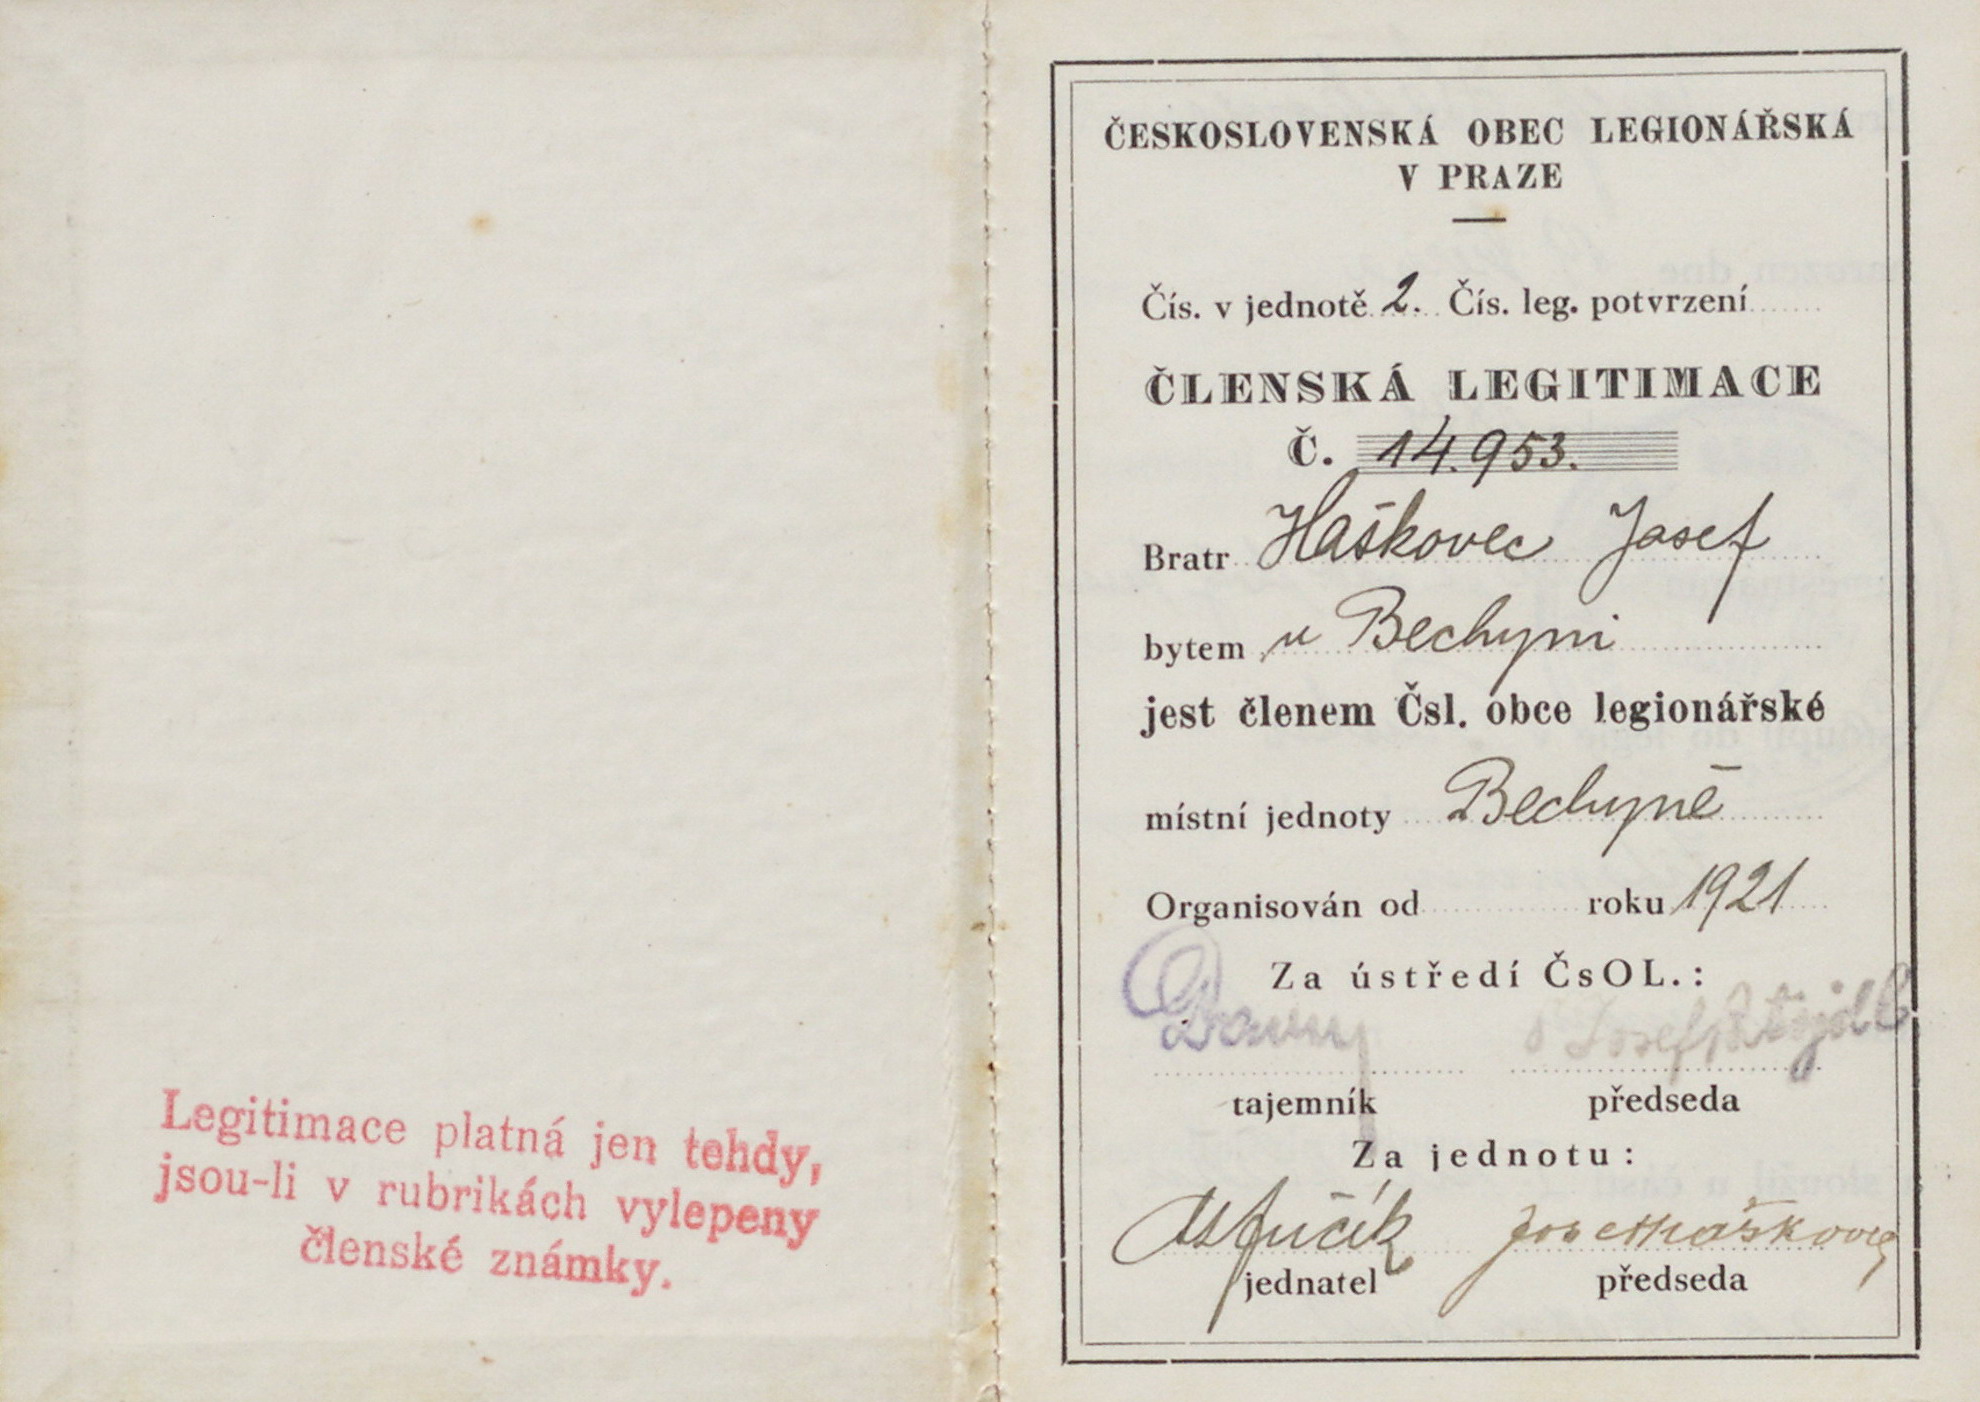 Legitimace platná jen tehdy,
jsou-li v rubrikách vylepeny
členské známky.
ČESKOSLOVENSKÁ OBEC LEGIONÁŘSKÁ
V PRAZE
Čís. v jednotě 2. Čís. leg. potvrzení
ČLENSKÁ LEGITIMACE
Č. 14.953.
Bratr Haškovec Josef
bytem v Bechyni
jest členem Čsl. obce legionářské
místní jednoty Bechyně
Organisován od roku 1921
Za ústředí ČsOL.:
Josef
tajemník předseda
Za jednotu:
Josef Haškovec
jednatel předseda